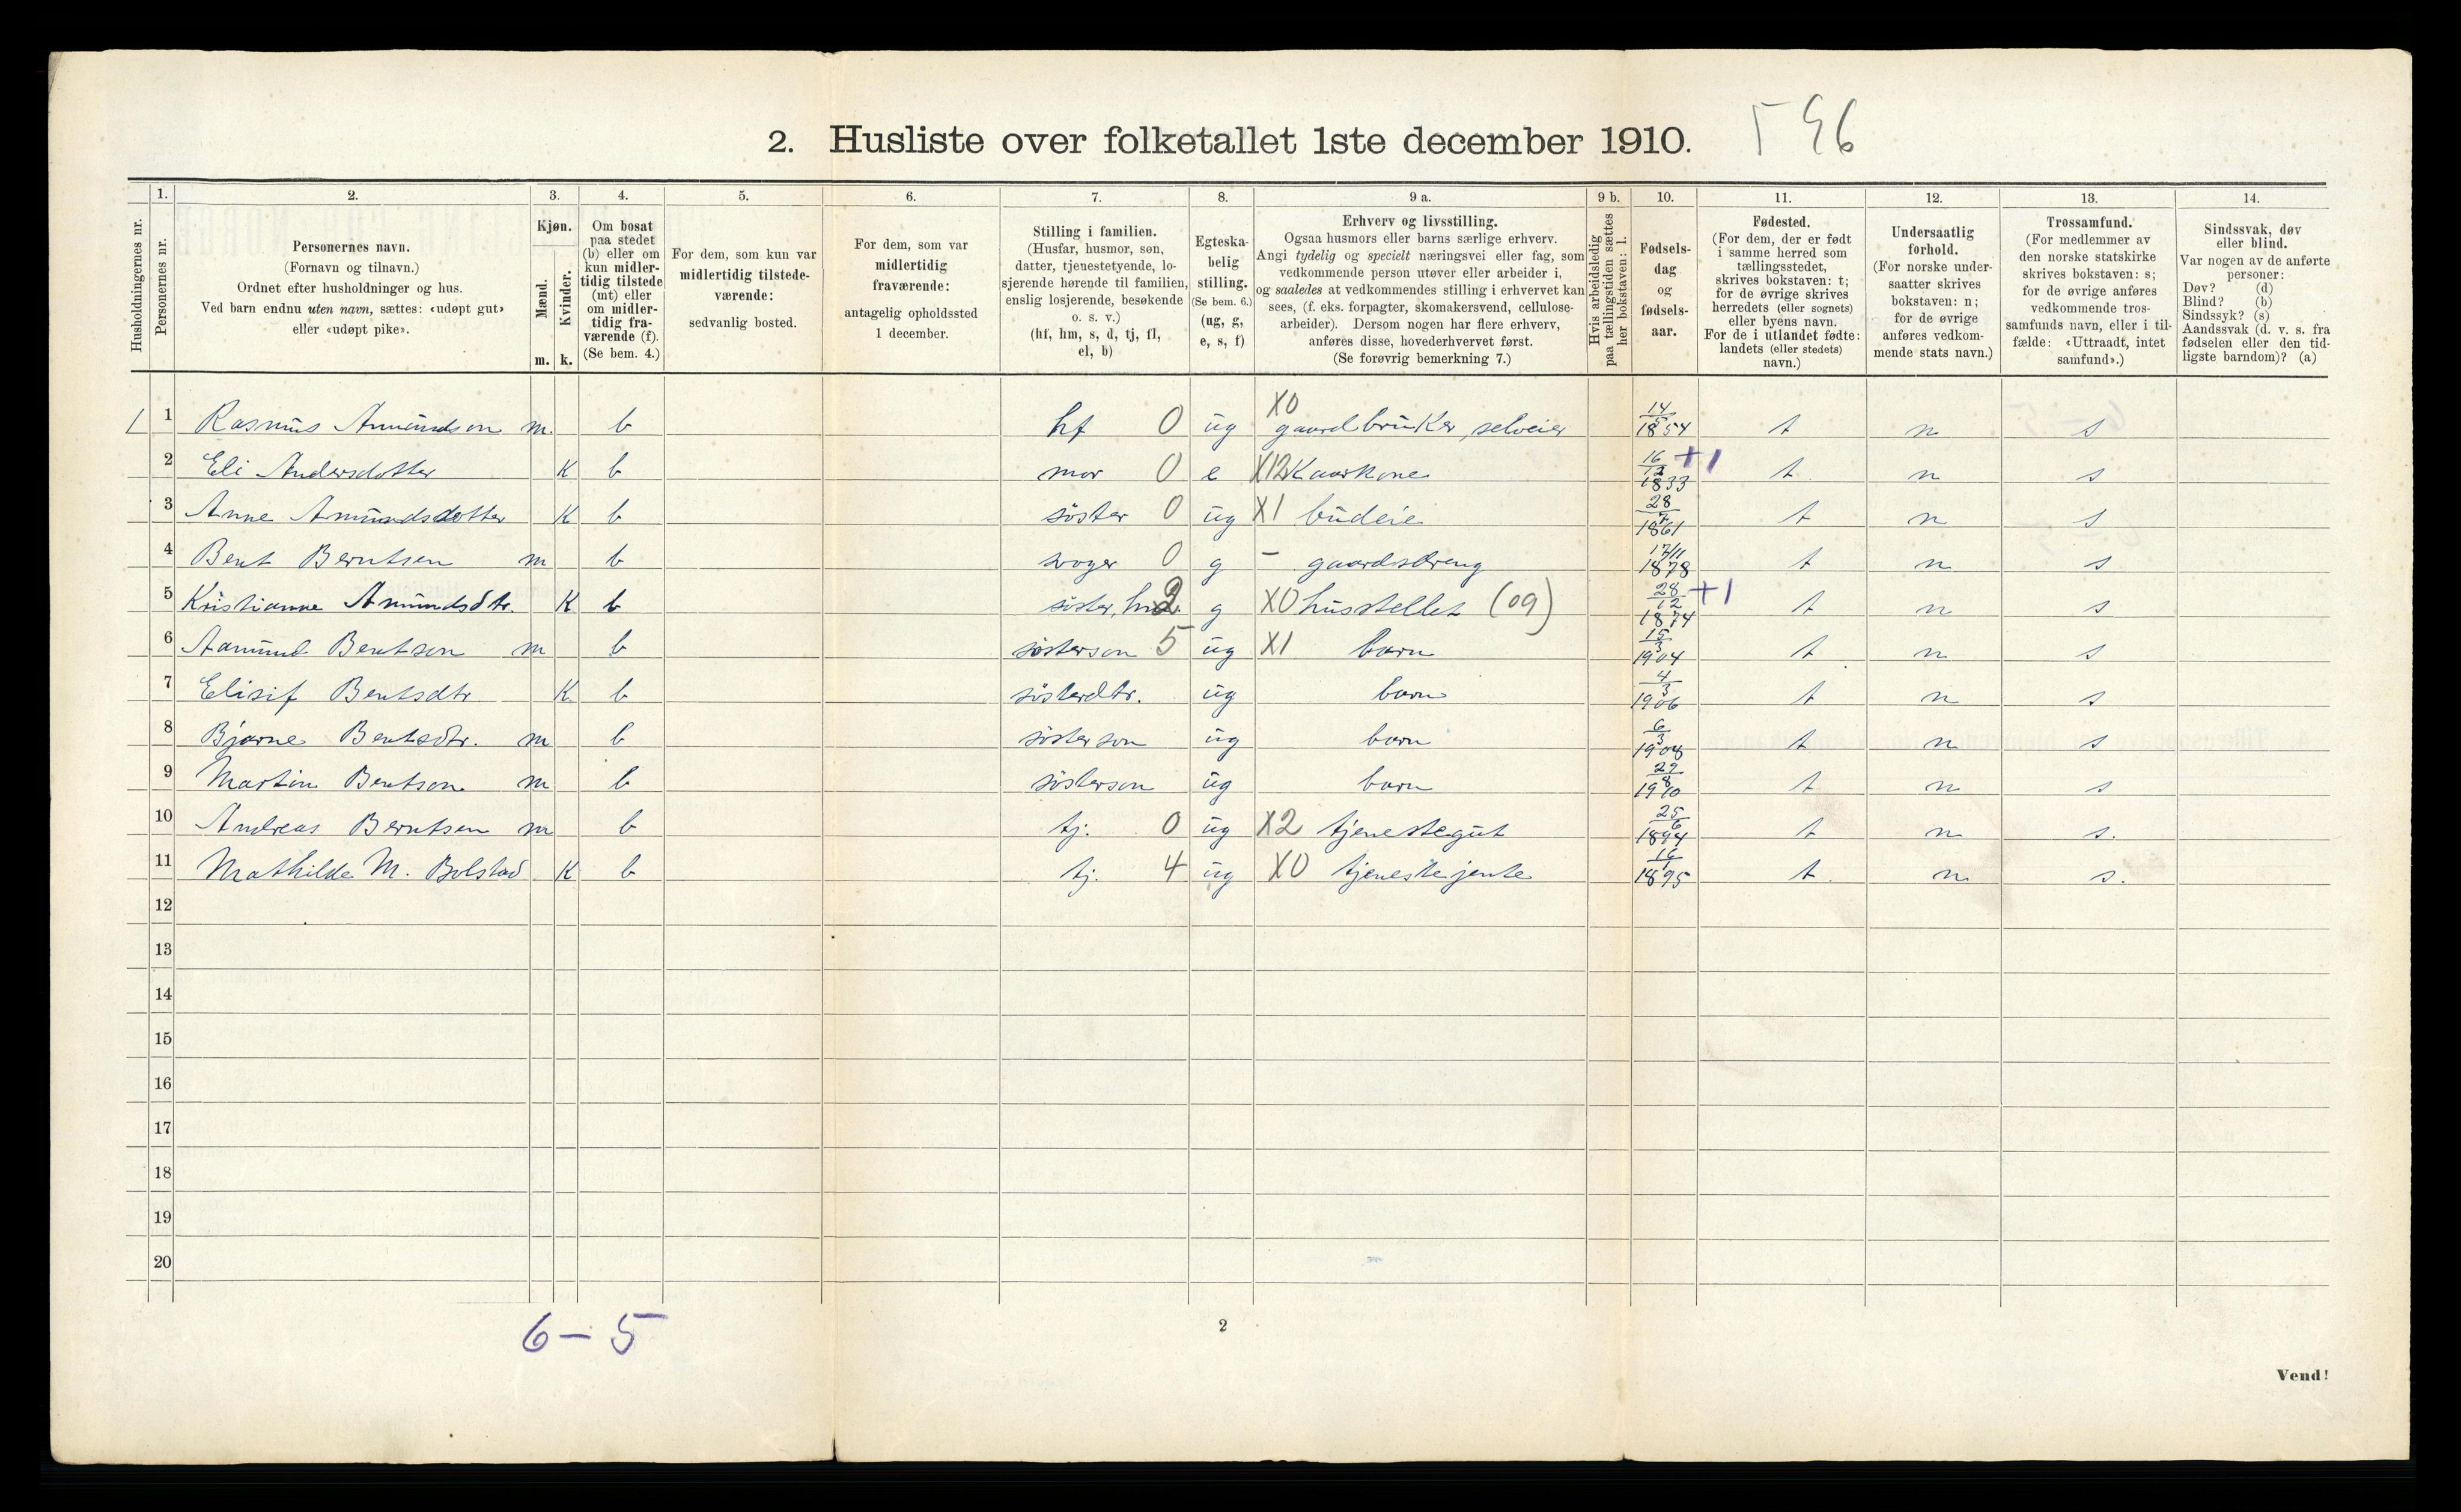 2. Husliste over folketallet 1ste december 1910.
1. 2. 3. 4. 5. 6. 7. 8. 9 a. 9 b. 10. 11. 12. 13. 14.
Husholdningernes nr.
Personernes nr.
Personernes navn.
(Fornavn og tilnavn.)
Ordnet efter husholdninger og hus.
Ved barn endnu uten navn, sættes: «udøpt gut»
eller «udøpt pike».
Kjøn.
Mænd.
Kvinder.
m. k.
Om bosat
paa stedet
(b) eller om
kun midler-
tidig tilstede
(mt) eller
om midler-
tidig fra-
værende (f).
(Se bem. 4.)
For dem, som kun var
midlertidig tilstede-
værende:
sedvanlig bosted.
For dem, som var
midlertidig
fraværende:
antagelig opholdssted
1 december.
Stilling i familien.
(Husfar, husmor, søn,
datter, tjenestetyende, lo-
sjerende hørende til familien,
enslig losjerende, besøkende
o. s. v.)
(hf, hm, s, d, tj, fl,
el, b)
Egteska-
belig
stilling.
(Se bem. 6.)
(ug, g,
e, s, f)
Erhverv og livsstilling.
Ogsaa husmors eller barns særlige erhverv.
Angi tydelig og specielt næringsvei eller fag, som
vedkommende person utøver eller arbeider i,
og saaledes at vedkommendes stilling i erhvervet kan
sees, (f. eks. forpagter, skomakersvend, cellulose-
arbeider). Dersom nogen har flere erhverv,
anføres disse, hovederhvervet først.
(Se forøvrig bemerkning 7.)
Hvis arbeidsledig
paa tællingstiden sættes
her bokstaven: l.
Fødsels-
dag
og
fødsels-
aar.
Fødested.
(For dem, der er født
i samme herred som
tællingsstedet,
skrives bokstaven: t;
for de øvrige skrives
herredets (eller sognets)
eller byens navn.
For de i utlandet fødte:
landets (eller stedets)
navn.)
Undersaatlig
forhold.
(For norske under-
saatter skrives
bokstaven: n;
for de øvrige
anføres vedkom-
mende stats navn.)
Trossamfund.
(For medlemmer av
den norske statskirke
skrives bokstaven: s;
for de øvrige anføres
vedkommende tros-
samfunds navn, eller i til-
fælde: «Uttraadt, intet
samfund».)
Sindssvak, døv
eller blind.
Var nogen av de anførte
personer:
Døv? (d)
Blind? (b)
Sindssyk? (s)
Aandssvak (d. v. s. fra
fødselen eller den tid-
ligste barndom)? (a)
1 1 Rasmus Amundson m. b hf 0 ug X0 gaardbruker, selveier 14/5 1854 t n s
2 Eli Andersdotter K b mor 0 e X12 Kaarkone 16/12 1833 +1 t n s
3 Anne Amundsdotter K b söster 0 ug X1 budeie 28/7 1861 t n s
4 Bent Berntsen m b svoger 0 g – gaardsdreng 17/11 1878 t n s
5 Kristianne Amundsdtr. K b söster, 2 g X0 husstellet (09) 28/12 1874 +1 t n s
6 Aamund Bentson m b söstersön 5 ug X1 barn 15/3 1904 t n s
7 Elisif Bentsdtr K b sösterdtr. ug barn 4/3 1906 t n s
8 Bjarne Bentsdtr. m b sösterson ug barn 6/3 1908 t n s
9 Martin Bentson m b sösterson ug barn 29/8 1910 t n s
10 Andreas Berntsen m b tj. 0 ug X2 tjenestegut 25/6 1894 t n s.
11 Mathilde M. Bolstad K b tj. 4 ug X0 tjenestejente 16/1 1895 t n s.
12
13
14
15
16
17
18
19
20
6–5
2
Vend!